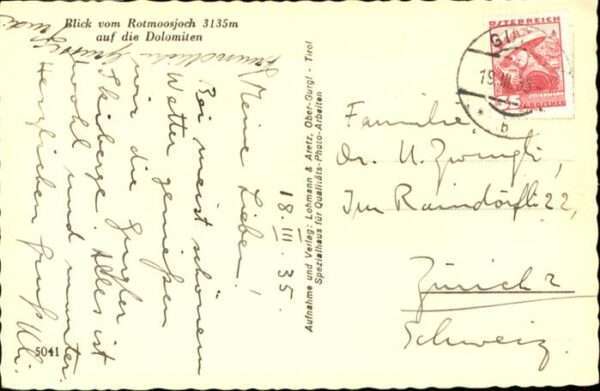 Blick vom Rotmoosjoch 3135m
auf die Dolomiten
18. III. 35.
Meine Lieben!
Bei meist schönem
Wetter genießen
wir die Gurgler
Skiberge. Alles ist
wohl und munter.
Herzlichen Gruß Uli.
5041
Aufnahme und Verlag: Lohmann & Aretz, Ober-Gurgl - Tirol
Spezialhaus für Qualitäts-Photo-Arbeiten
ÖSTERREICH
19. III. 35
b
Familie
Dr. U. Zwingli,
Im Raindörfli 22,
Zürich 2
Schweiz